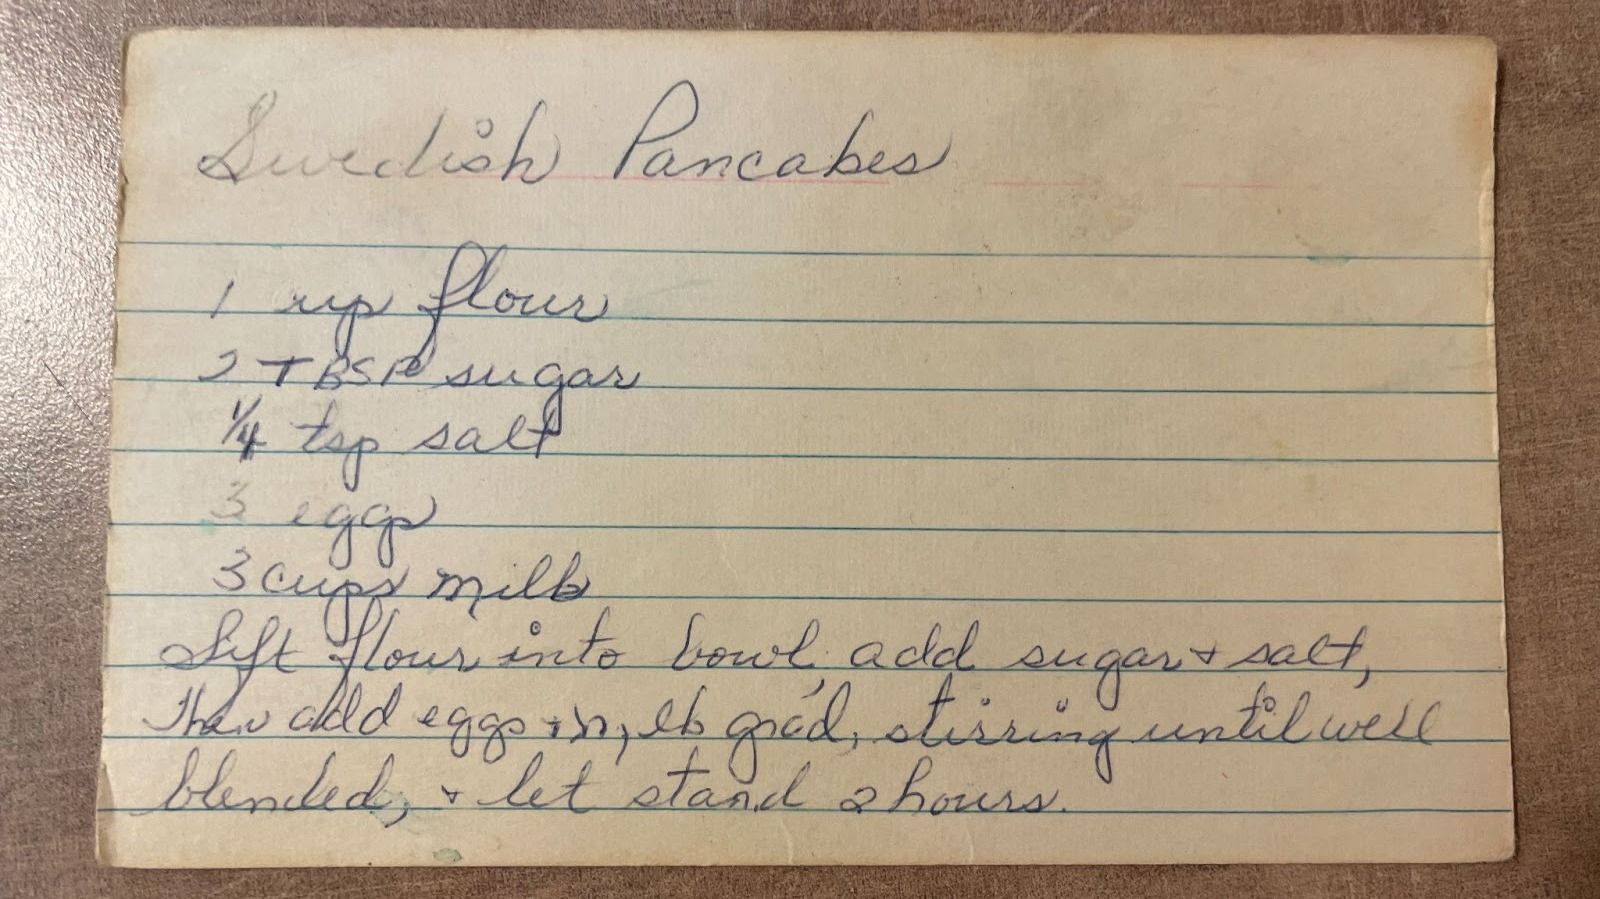 Swedish Pancakes
1 cup flour
2 TBSP sugar
1/4 tsp salt
3 eggs
3 cups milk
Sift flour into bowl, add sugar + salt,
Then add eggs + milk grad, stirring until well
blended, + let stand 2 hours.